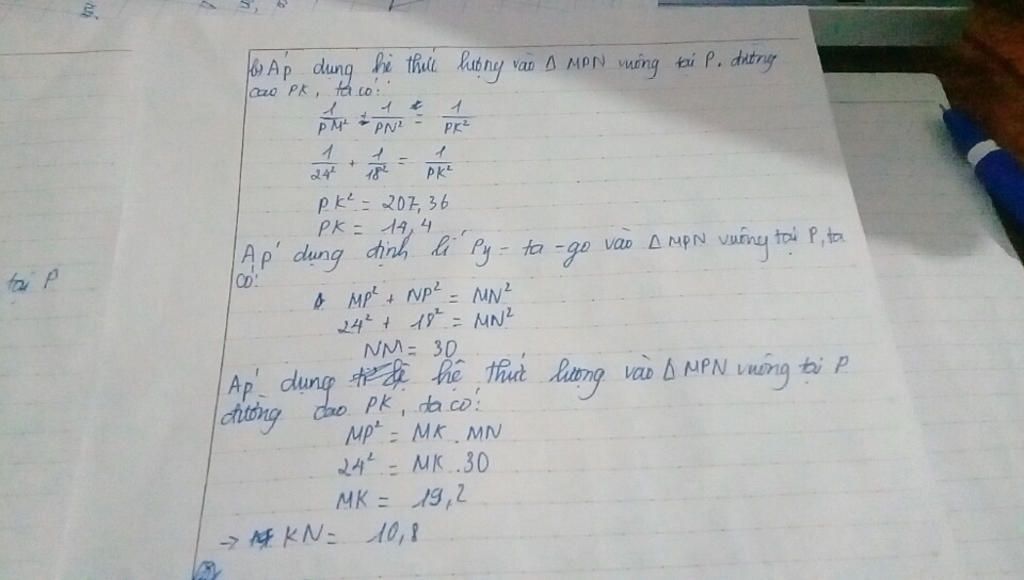 b) Áp dụng hệ thức lượng vào Δ MPN vuông tại P. đường
cao PK, ta có:
1/PM² + 1/PN² = 1/PK²
1/24² + 1/18² = 1/PK²
PK² = 207,36
PK = 14,4
Áp dụng định lí Py-ta-go vào Δ MPN vuông tại P, ta
có:
MP² + NP² = MN²
24² + 18² = MN²
NM = 30
Áp dụng hệ thức lượng vào Δ MPN vuông tại P
đường cao PK, ta có:
MP² = MK . MN
24² = MK .30
MK = 19,2
→ KN = 10,8
tại P